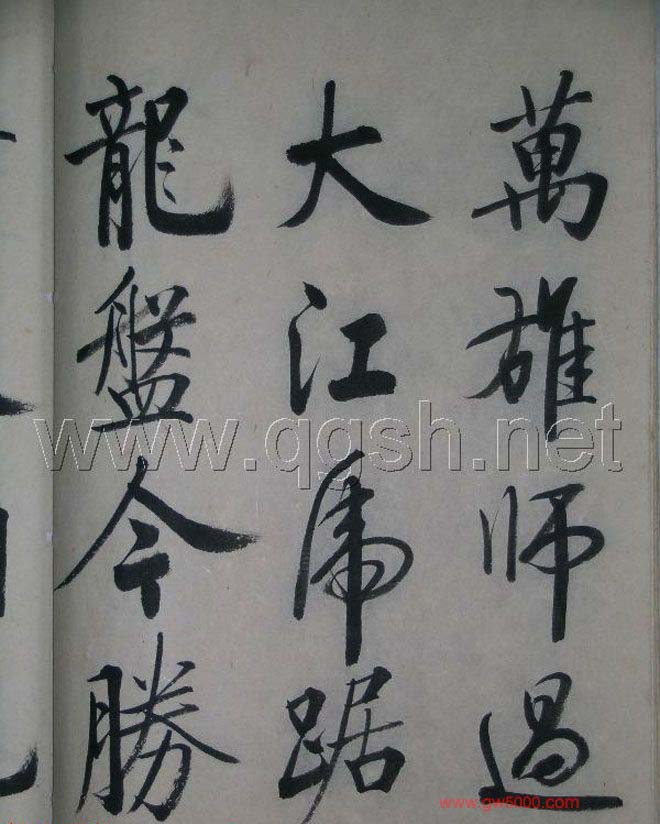 萬雄师過
大江虎踞
龍盤今勝
www.qgsh.net
www.gw5000.com